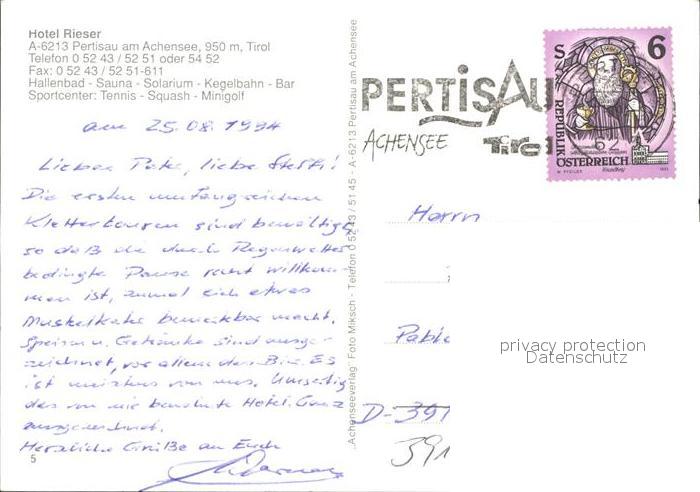 Hotel Rieser
A-6213 Pertisau am Achensee, 950 m, Tirol
Telefon 0 52 43 / 52 51 oder 54 52
Fax: 0 52 43 / 52 51-611
Hallenbad - Sauna - Solarium - Kegelbahn - Bar
Sportcenter: Tennis - Squash - Minigolf
am 25.08.1994
Lieber Pate, liebe Steffi!
Die ersten umfangreichen
Klettertouren sind bewältigt,
so daß die durch Regenwetter
bedingte Pause recht willkom-
men ist, zumal sich etwas
Muskelkater bemerkbar macht.
Speisen u. Getränke sind ausge-
zeichnet, vor allem das Bier. Es
ist meistens von uns. Umseitig
das von mir bewohnte Hotel. Ganz
ausgezeichnet.
Herzliche Grüße an Euch
5
"Achenseeverlag" Foto Miksch - Telefon 0 52 43 / 51 45 - A-6213 Pertisau am Achensee
PERTISAU
ACHENSEE
Tirol
S 6
REPUBLIK
ÖSTERREICH
Herrn
D-391
391
privacy protection
Datenschutz